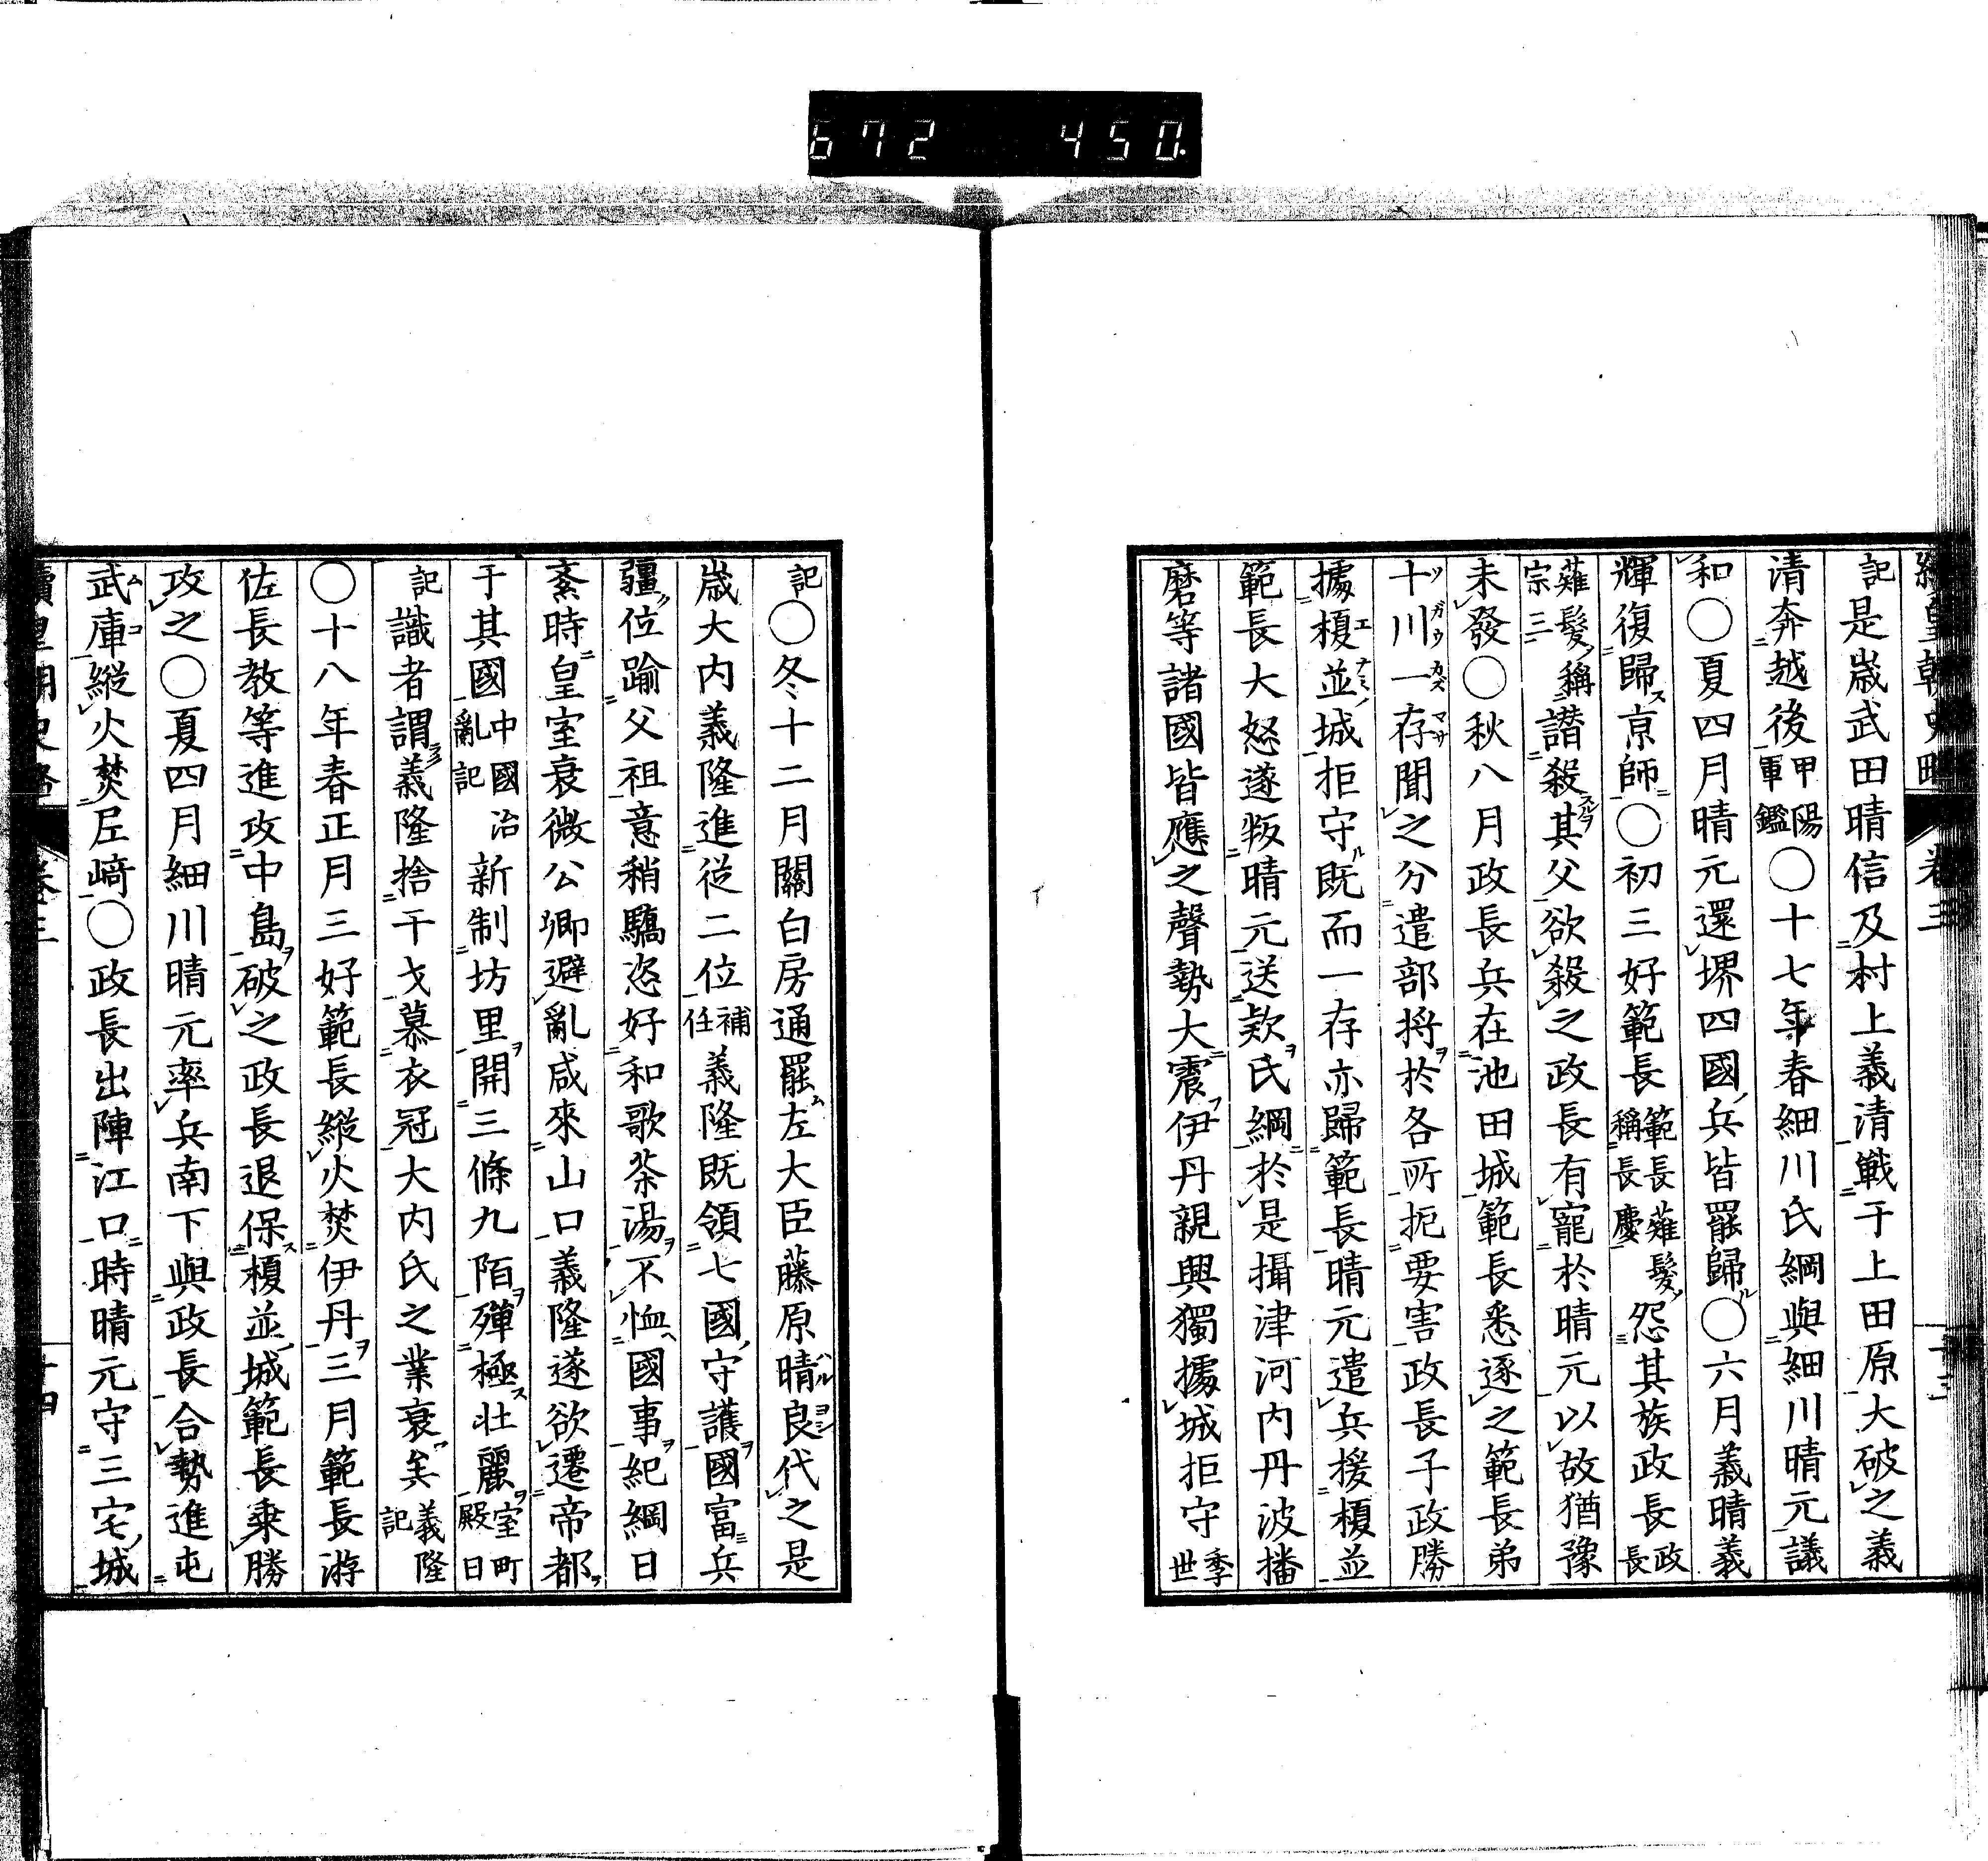 672 450.
續皇朝史略 卷三 十三
記是歲武田晴信及村上義清戰于上田原大破之義
清奔越後甲陽軍鑑〇十七年春細川氏綱與細川晴元議
和〇夏四月晴元還堺四國兵皆罷歸〇六月義晴義
輝復歸京師〇初三好範長範長薙髮稱長慶怨其族政長政長
薙髮稱宗三譖殺其父欲殺之政長有寵於晴元以故猶豫
未發〇秋八月政長兵在池田城範長悉逐之範長弟
十川一存聞之分遣部將於各所扼要害政長子政勝
據榎並城拒守既而一存亦歸範長晴元遣兵援榎並
範長大怒遂叛晴元送款氏綱於是攝津河內丹波播
磨等諸國皆應之聲勢大震伊丹親興獨據城拒守季世
記〇冬十二月關白房通罷左大臣藤原晴良代之是
歲大內義隆進從二位補任義隆既領七國守護國富兵
疆位踰父祖意稍驕恣好和歌茶湯不恤國事紀綱日
紊時皇室衰微公卿避亂咸來山口義隆遂欲遷帝都
于其國中國治亂記新制坊里開三條九陌殫極壯麗室町殿日
記識者謂義隆捨干戈慕衣冠大內氏之業衰矣義隆記
〇十八年春正月三好範長縱火焚伊丹三月範長游
佐長教等進攻中島破之政長退保榎並城範長乘勝
攻之〇夏四月細川晴元率兵南下與政長合勢進屯
武庫縱火焚尼崎〇政長出陣江口時晴元守三宅城
續皇朝史略 卷三 十四